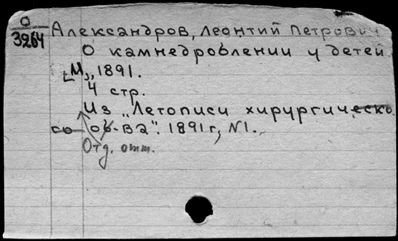 О
3264
Александров, Леонтий Петрович
О камнедроблении у детей.
[М.,] 1891.
4 стр.
Из „Летописи хирургическо
го об-ва". 1891 г., N1.
Отд. отт.